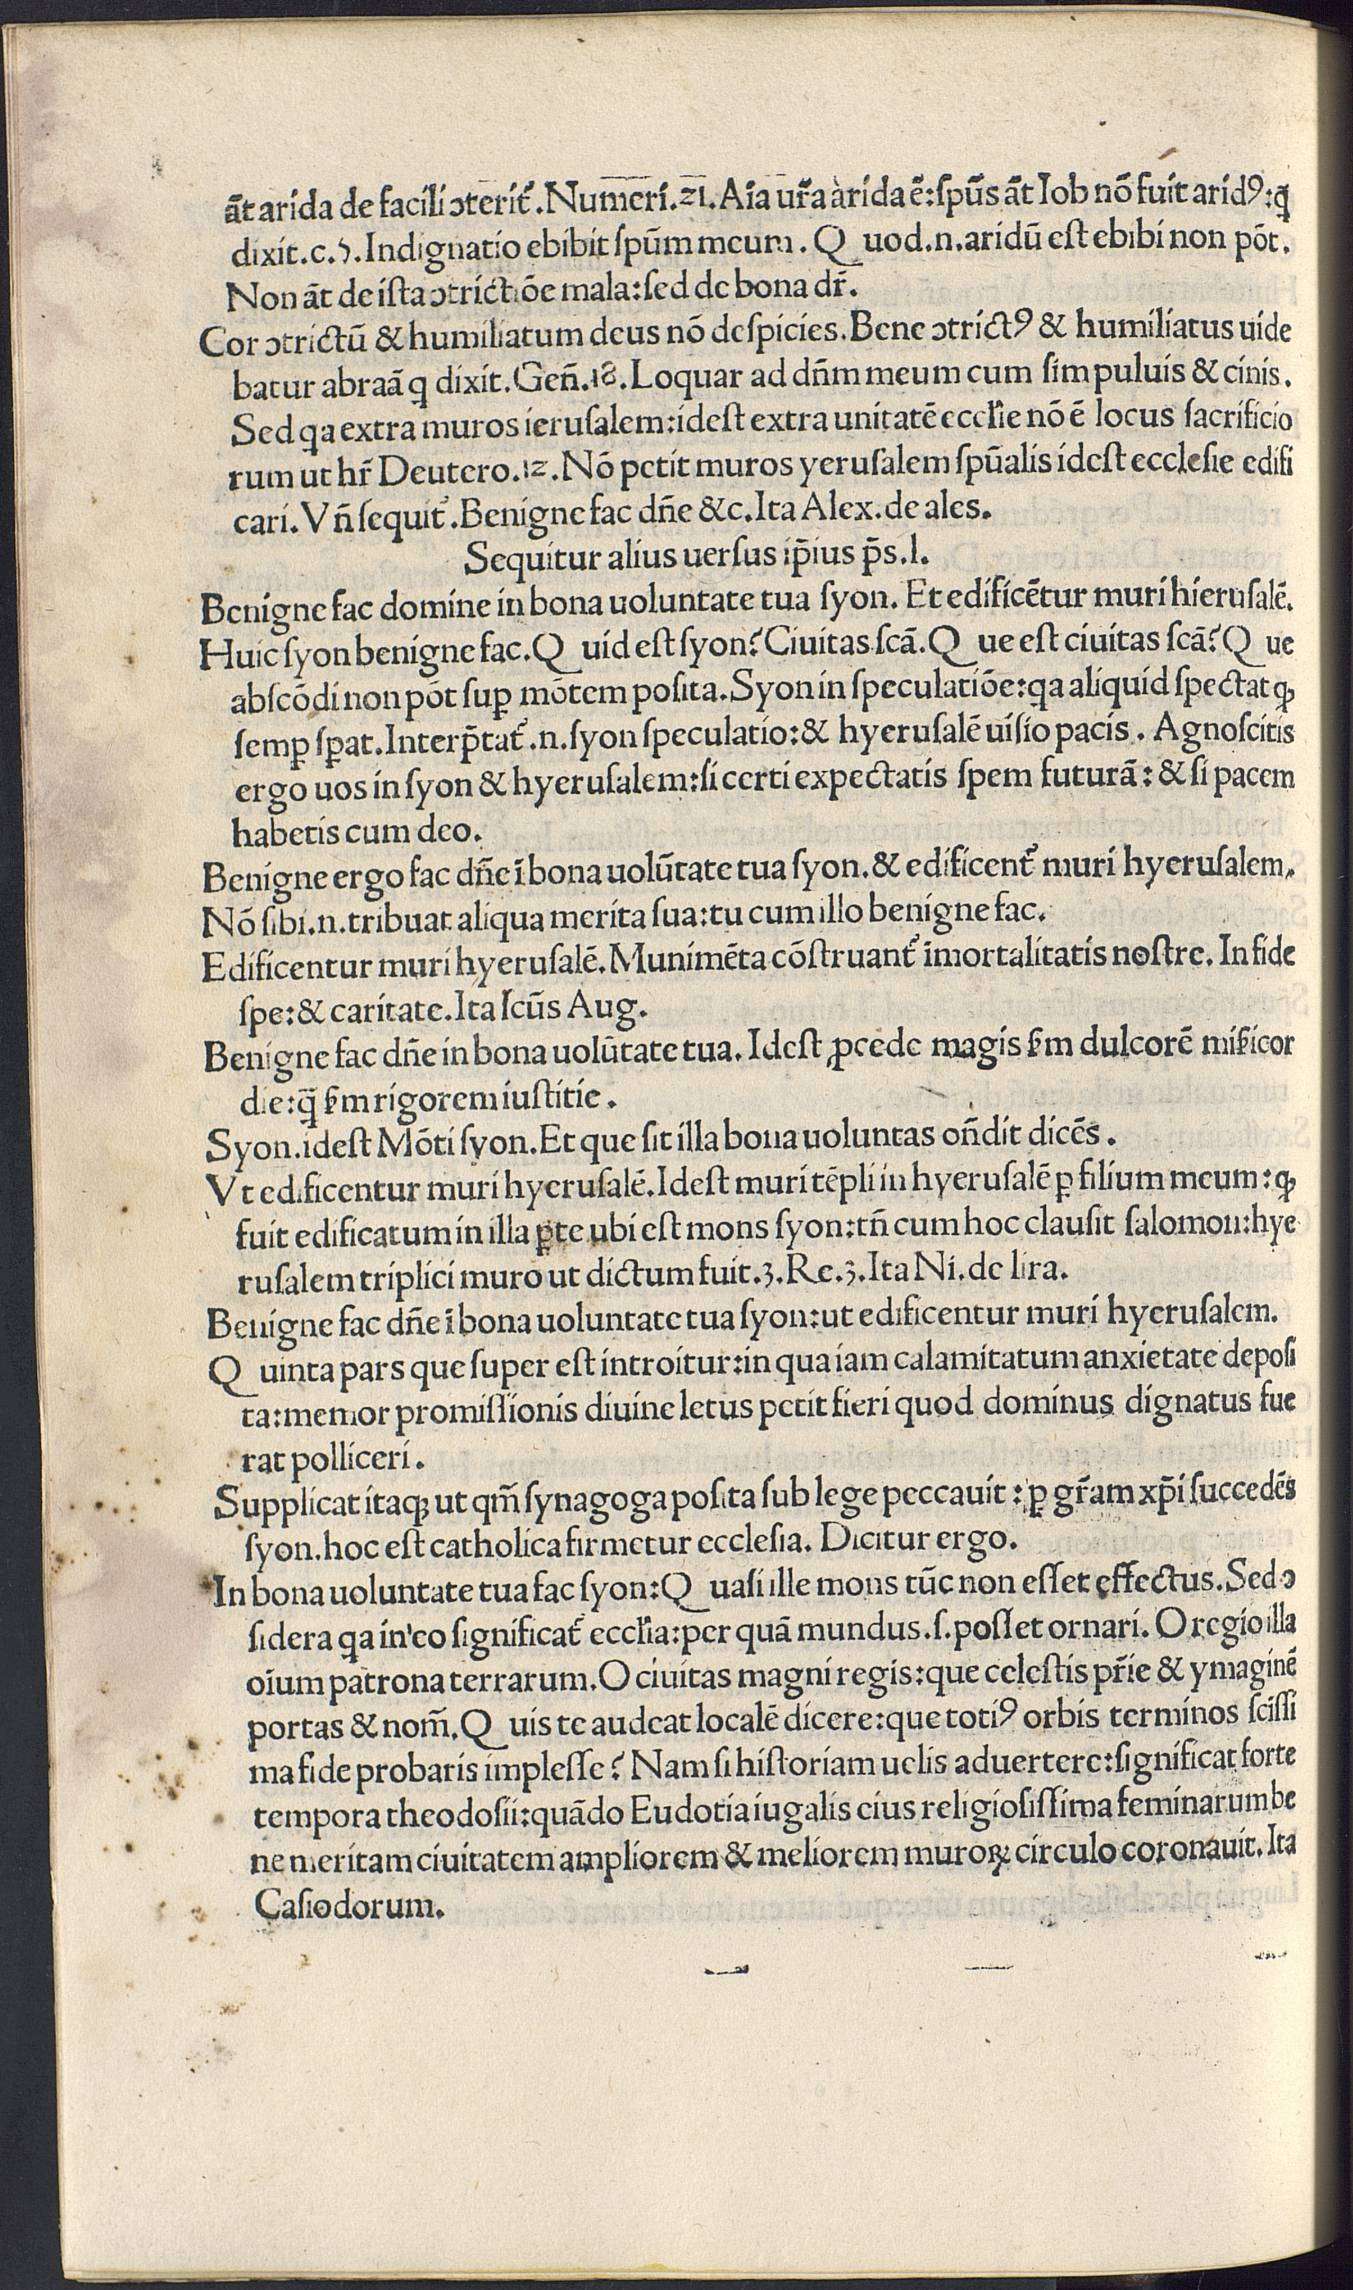 āt arida de facili ɔterit᷑. Numeri. 21. Aīa ur̄a arida ē: ſpūs āt Iob nō fuit arid⁹: q̄
dixit. c. 5. Indignatio ebibit ſpūm meum. Q uod. n. aridū eſt ebibi non pōt.
Non āt de iſta ɔtrictiōe mala: ſed de bona dr̄.
Cor ɔtrictū & humiliatum deus nō deſpicies. Bene ɔtrict⁹ & humiliatus uide
batur abraā q dixit. Gen̄. 18. Loquar ad dn̄m meum cum ſim puluis & cinis.
Sed qa extra muros ieruſalem: ideſt extra unitatē eccłie nō ē locus ſacrificio
rum ut hr̄ Deutero. 12. Nō petit muros yeruſalem ſpūalis ideſt eccleſie edifi
cari. Vn̄ ſequit᷑. Benigne fac dn̄e &c. Ita Alex. de ales.
Sequitur alius uerſus ip̄ius p̄s. l.
Benigne fac domine in bona uoluntate tua ſyon. Et edificētur muri hieruſalē.
Huic ſyon benigne fac. Q uid eſt ſyon? Ciuitas ſcā. Q ue eſt ciuitas ſcā? Q ue
abſcōdi non pōt ſuꝑ mōtem poſita. Syon in ſpeculatiōe: qa aliquid ſpectat qꝫ
ſemꝑ ſꝑat. Interp̄tat᷑. n. ſyon ſpeculatio: & hyeruſalē uiſio pacis. Agnoſcitis
ergo uos in ſyon & hyeruſalem: ſi certi expectatis ſpem futurā: & ſi pacem
habetis cum deo.
Benigne ergo fac dn̄e ī bona uolūtate tua ſyon. & edificent᷑ muri hyeruſalem.
Nō ſibi. n. tribuat aliqua merita ſua: tu cum illo benigne fac.
Edificentur muri hyeruſalē. Munimēta cōſtruant᷑ īmortalitatis noſtre. In fide
ſpe: & caritate. Ita ſcūs Aug.
Benigne fac dn̄e in bona uolūtate tua. Ideſt ꝓcede magis ẜm dulcorē miẜicor
die: q̄ ẜm rigorem iuſtitie.
Syon. ideſt Mōti ſyon. Et que ſit illa bona uoluntas on̄dit dicēs.
Vt edificentur muri hyeruſalē. Ideſt muri tēpli in hyeruſalē ꝑ filium meum: qꝫ
fuit edificatum in illa ꝑte ubi eſt mons ſyon: tn̄ cum hoc clauſit ſalomon: hye
ruſalem triplici muro ut dictum fuit. 3. Re. 3. Ita Ni. de lira.
Benigne fac dn̄e ī bona uoluntate tua ſyon: ut edificentur muri hyeruſalem.
Q uinta pars que ſuper eſt introitur: in qua iam calamitatum anxietate depoſi
ta: memor promiſſionis diuine letus petit fieri quod dominus dignatus fue
rat polliceri.
Supplicat itaqꝫ ut qm̄ ſynagoga poſita ſub lege peccauit: ꝑ gr̄am xp̄i ſuccedēs
ſyon. hoc eſt catholica firmetur eccleſia. Dicitur ergo.
In bona uoluntate tua fac ſyon: Q uaſi ille mons tūc non eſſet effectus. Sed ɔ
ſidera qa in eo ſignificat᷑ eccłia: per quā mundus. ſ. poſſet ornari. O regio illa
oīum patrona terrarum. O ciuitas magni regis: que celeſtis pr̄ie & ymaginē
portas & nom̄. Q uis te audeat localē dicere: que toti⁹ orbis terminos ſcīſſi
ma fide probaris impleſſe? Nam ſi hiſtoriam uelis aduertere: ſignificat forte
tempora theodoſii: quādo Eudotia iugalis eius religioſiſſima feminarum be
ne meritam ciuitatem ampliorem & meliorem muroꝝ circulo coronauit. Ita
Caſiodorum.